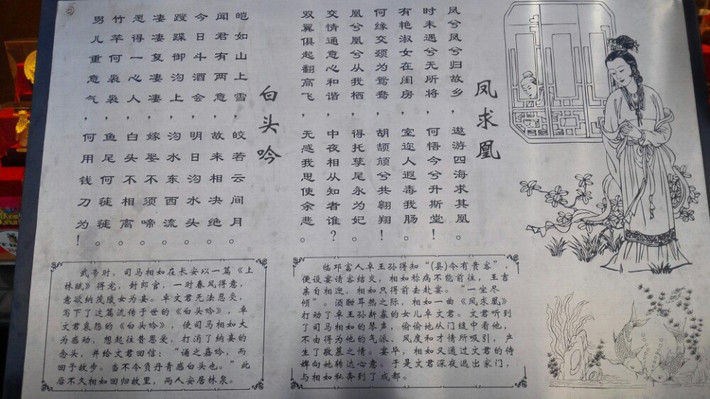 凤求凰
凤兮凤兮归故乡，遨游四海求其凰。
时未遇兮无所将，何悟今兮升斯堂！
有艳淑女在闺房，室迩人遐毒我肠。
何缘交颈为鸳鸯，胡颉颃兮共翱翔！
凰兮凰兮从我栖，得托孳尾永为妃。
交情通意心和谐，中夜相从知者谁？
双翼俱起翻高飞，无感我思使余悲。
白头吟
皑如山上雪，皎若云间月。
闻君有两意，故来相决绝。
今日斗酒会，明日沟水头。
躞蹀御沟上，沟水东西流。
凄凄复凄凄，嫁娶不须啼。
得一心人，白头不相离。
竹竿何袅袅，鱼尾何
男儿重意气，何用钱刀为！
临邛富人卓王孙得知“(县)令有贵客”，
便设宴请客结交，相如称病不能前往，王吉
亲自相迎，相如只得前去赴宴。“一坐尽
倾”，酒酣耳热之际，相如一曲《凤求凰》
打动了卓王孙新寡的女儿卓文君。文君听到
了司马相如的琴声，偷偷地从门缝中看他，
不由得为他的气派、风度和才情所吸引，产
生了敬慕之情。宴毕，相如又通过文君的侍
婢向她转达心意。于是文君深夜逃出家门，
与相如私奔到了成都。
武帝时，司马相如在长安以一篇《上
林赋》得宠，封郎官，一时春风得意，
意欲纳茂陵女为妾。卓文君无法忍受，
写下了这篇流传于世的《白头吟》，卓
文君哀怨的《白头吟》，使司马相如大
为感动，想起往昔恩爱，打消了纳妾的
念头，并给文君回信：“诵之嘉吟，而
回予故步。当不令负丹青感白头也。”此
后不久相如回归故里，两人安居林泉。